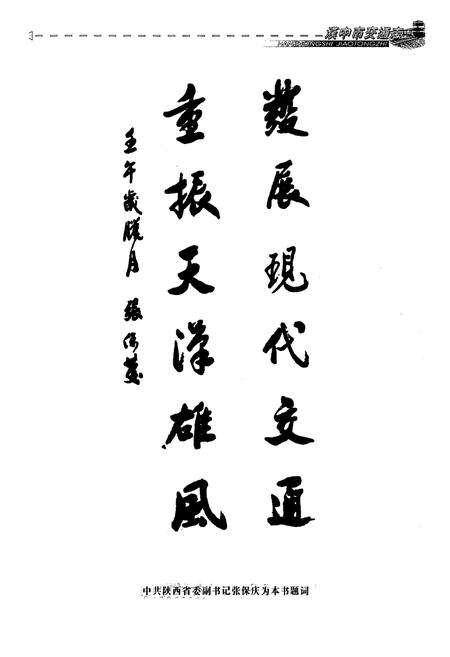 汉中市交通志
HANZHONGSHI JIAOTONGZHI
發展現代交通
重振天漢雄風
壬午歲臘月 張保慶
中共陕西省委副书记张保庆为本书题词